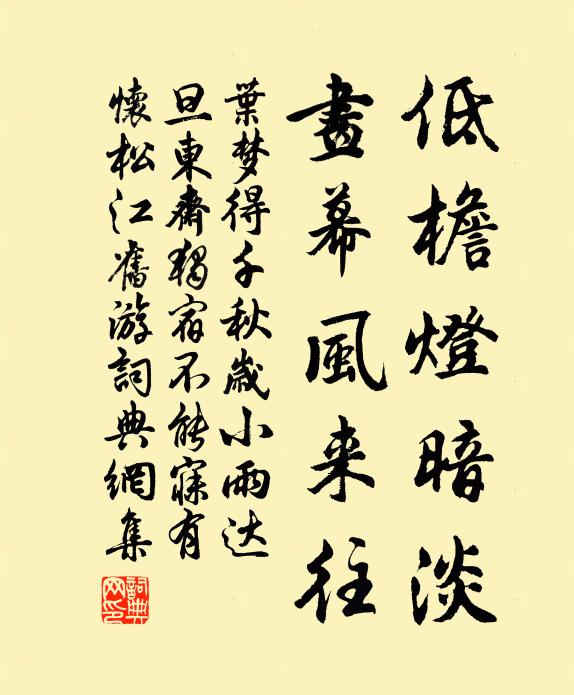 低檐燈暗淡
畫幕風来往
葉梦得千秋歲小雨达
旦東齋獨宿不能寐有
懷松江舊游詞典網集
詞典网印